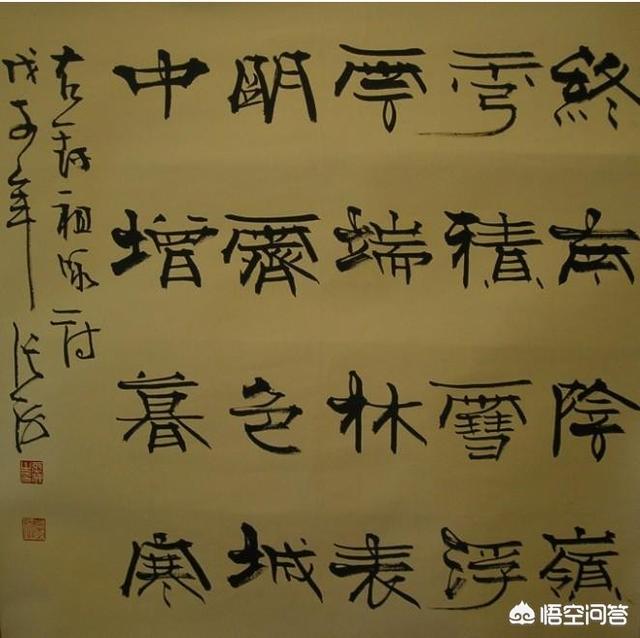 終南陰嶺
秀積雪浮
雲端林表
明霽色城
中增暮寒
祖詠詩
戊子年
悟空问答